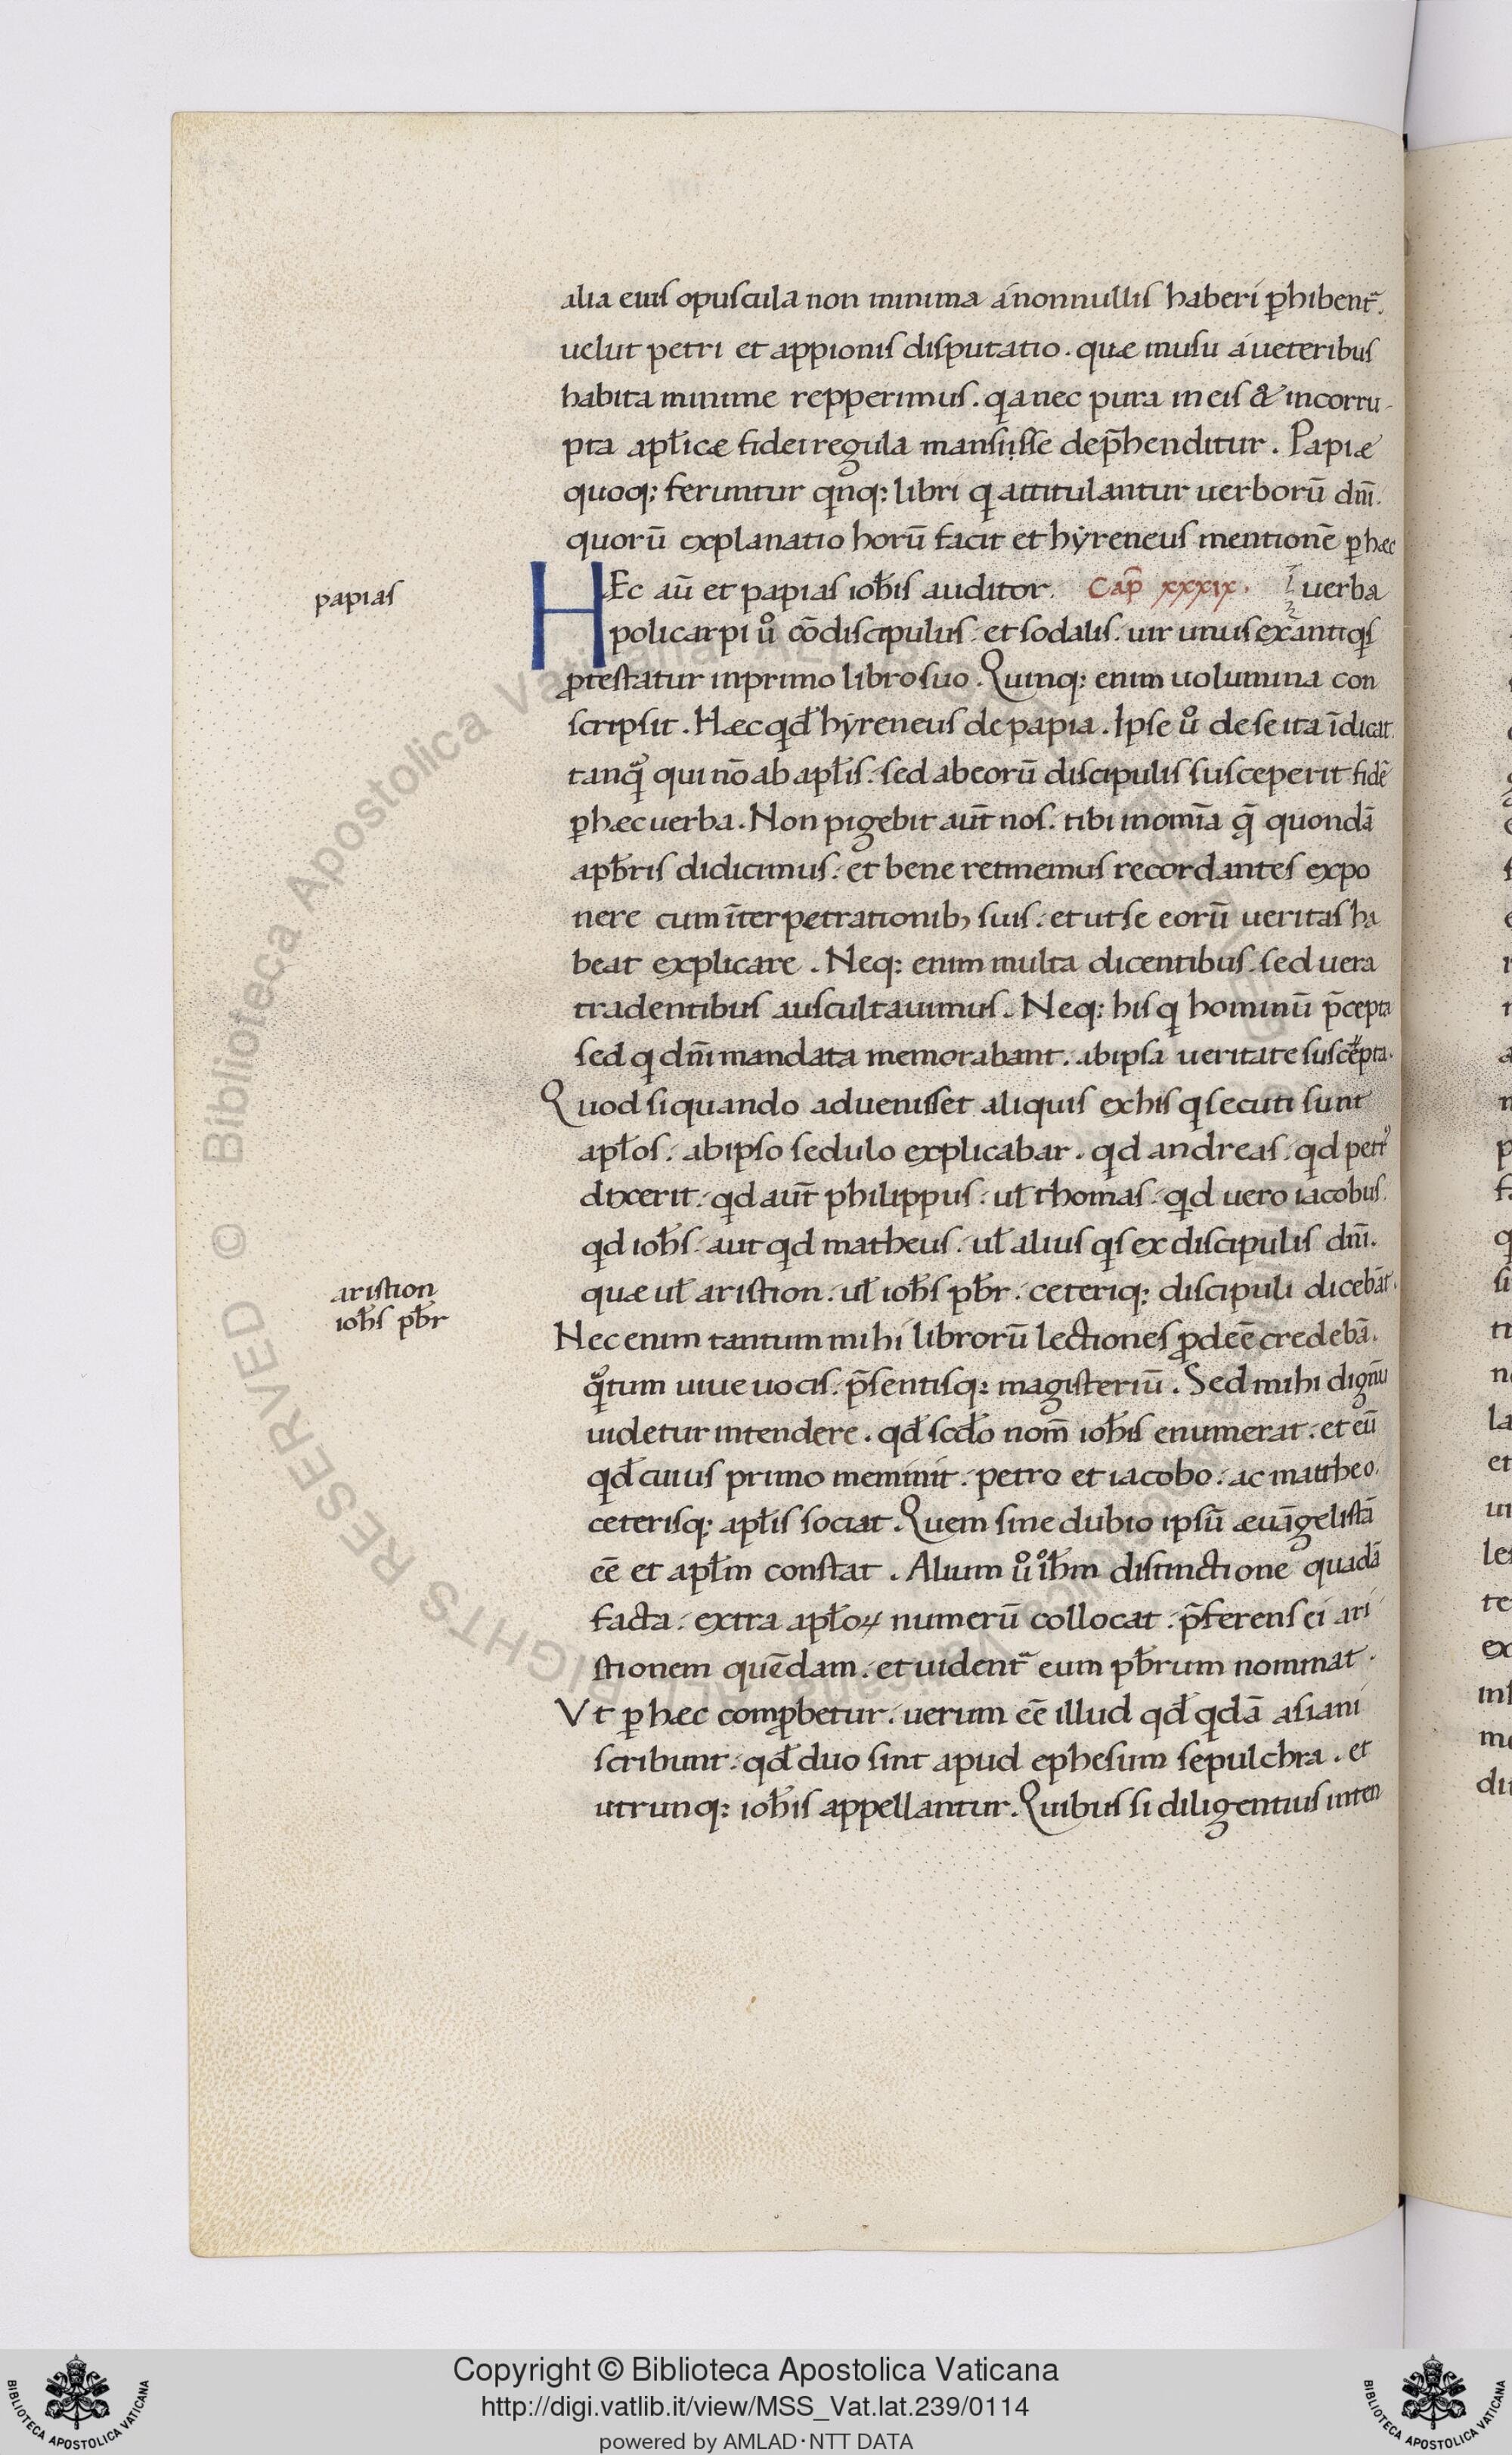 alia eius opuscula non minima á nonnullis haberi ꝑhibent᷑.
uelut petri et appionis disputatio. quæ in usu á ueteribus
habita minime repperimus. qa nec pura in eis & incorru-
pta apłicæ fidei regula mansiisse dep̄henditur. Papiæ
quoq; feruntur qnq; libri q attitulantur uerborū dn̄i.
quorū explanatio horū facit et hẏreneus mentionē ꝑ hæc
papias
HEc aū et papias ioħis auditor. Cap̄ xxxix. uerba
policarpi ů cōdiscipulus. et sodalis. uir unus ex antiqs
ꝓtestatur in primo libro suo. Quinq; enim uolumina con
scripsit. Hæc qđ hẏreneus de papia. Ipse ů de se ita īdicat.
tanq̃ qui nō ab apłis. sed ab eorū discipulis susceperit fidē
ꝑ hæc uerba. Non pigebit aut̄ nos. tibi in om̄ia q̄ quondā
a pƀris didicimus. et bene retinemus recordantes expo
nere cum īterpetrationib; suis. et ut se eorū ueritas ha
beat explicare. Neq; enim multa dicentibus. sed uera
tradentibus auscultauimus. Neq; his q hominū p̄cepta
sed q dn̄i mandata memorabant. ab ipsa ueritate suscepta.
Quod si quando aduenisset aliquis ex his q secuti sunt
apłos. ab ipso sedulo explicabar. qd andreas. qd petr᾽
dixerit. qd aut̄ philippus. uł thomas. qd uero iacobus.
qd ioħs. aut qd matheus. uł alius qs ex discipulis dn̄i.
aristion
ioħs pƀr
quæ uł aristion. uł ioħs pƀr. ceteriq; discipuli dicebāt.
Nec enim tantum mihi librorū lectiones ꝓdeē credebā.
q̃tum uiue uocis. p̄sentisq; magisteriū. Sed mihi dignū
uidetur intendere. qđ scđo nom̄ ioħis enumerat. et eū
qđ cuius primo meminit. petro et iacobo. ac mattheo.
ceterisq; apłis sociat. Quem sine dubio ipsū æuāgelistā
eē et apłm constat. Alium ů ioħm distinctione quadā
facta. extra apłoꝝ numerū collocat. p̄ferens ei ari
stionem quēdam. et uident᷑ eum pƀrum nominat.
Vt ꝑ hæc comꝓbetur. uerum eē illud qđ qdā asiani
scribunt. qđ duo sint apud ephesum sepulchra. et
utrunq; ioħis appellantur. Quibus si diligentius inten
Copyright © Biblioteca Apostolica Vaticana
http://digi.vatlib.it/view/MSS_Vat.lat.239/0114
powered by AMLAD·NTT DATA